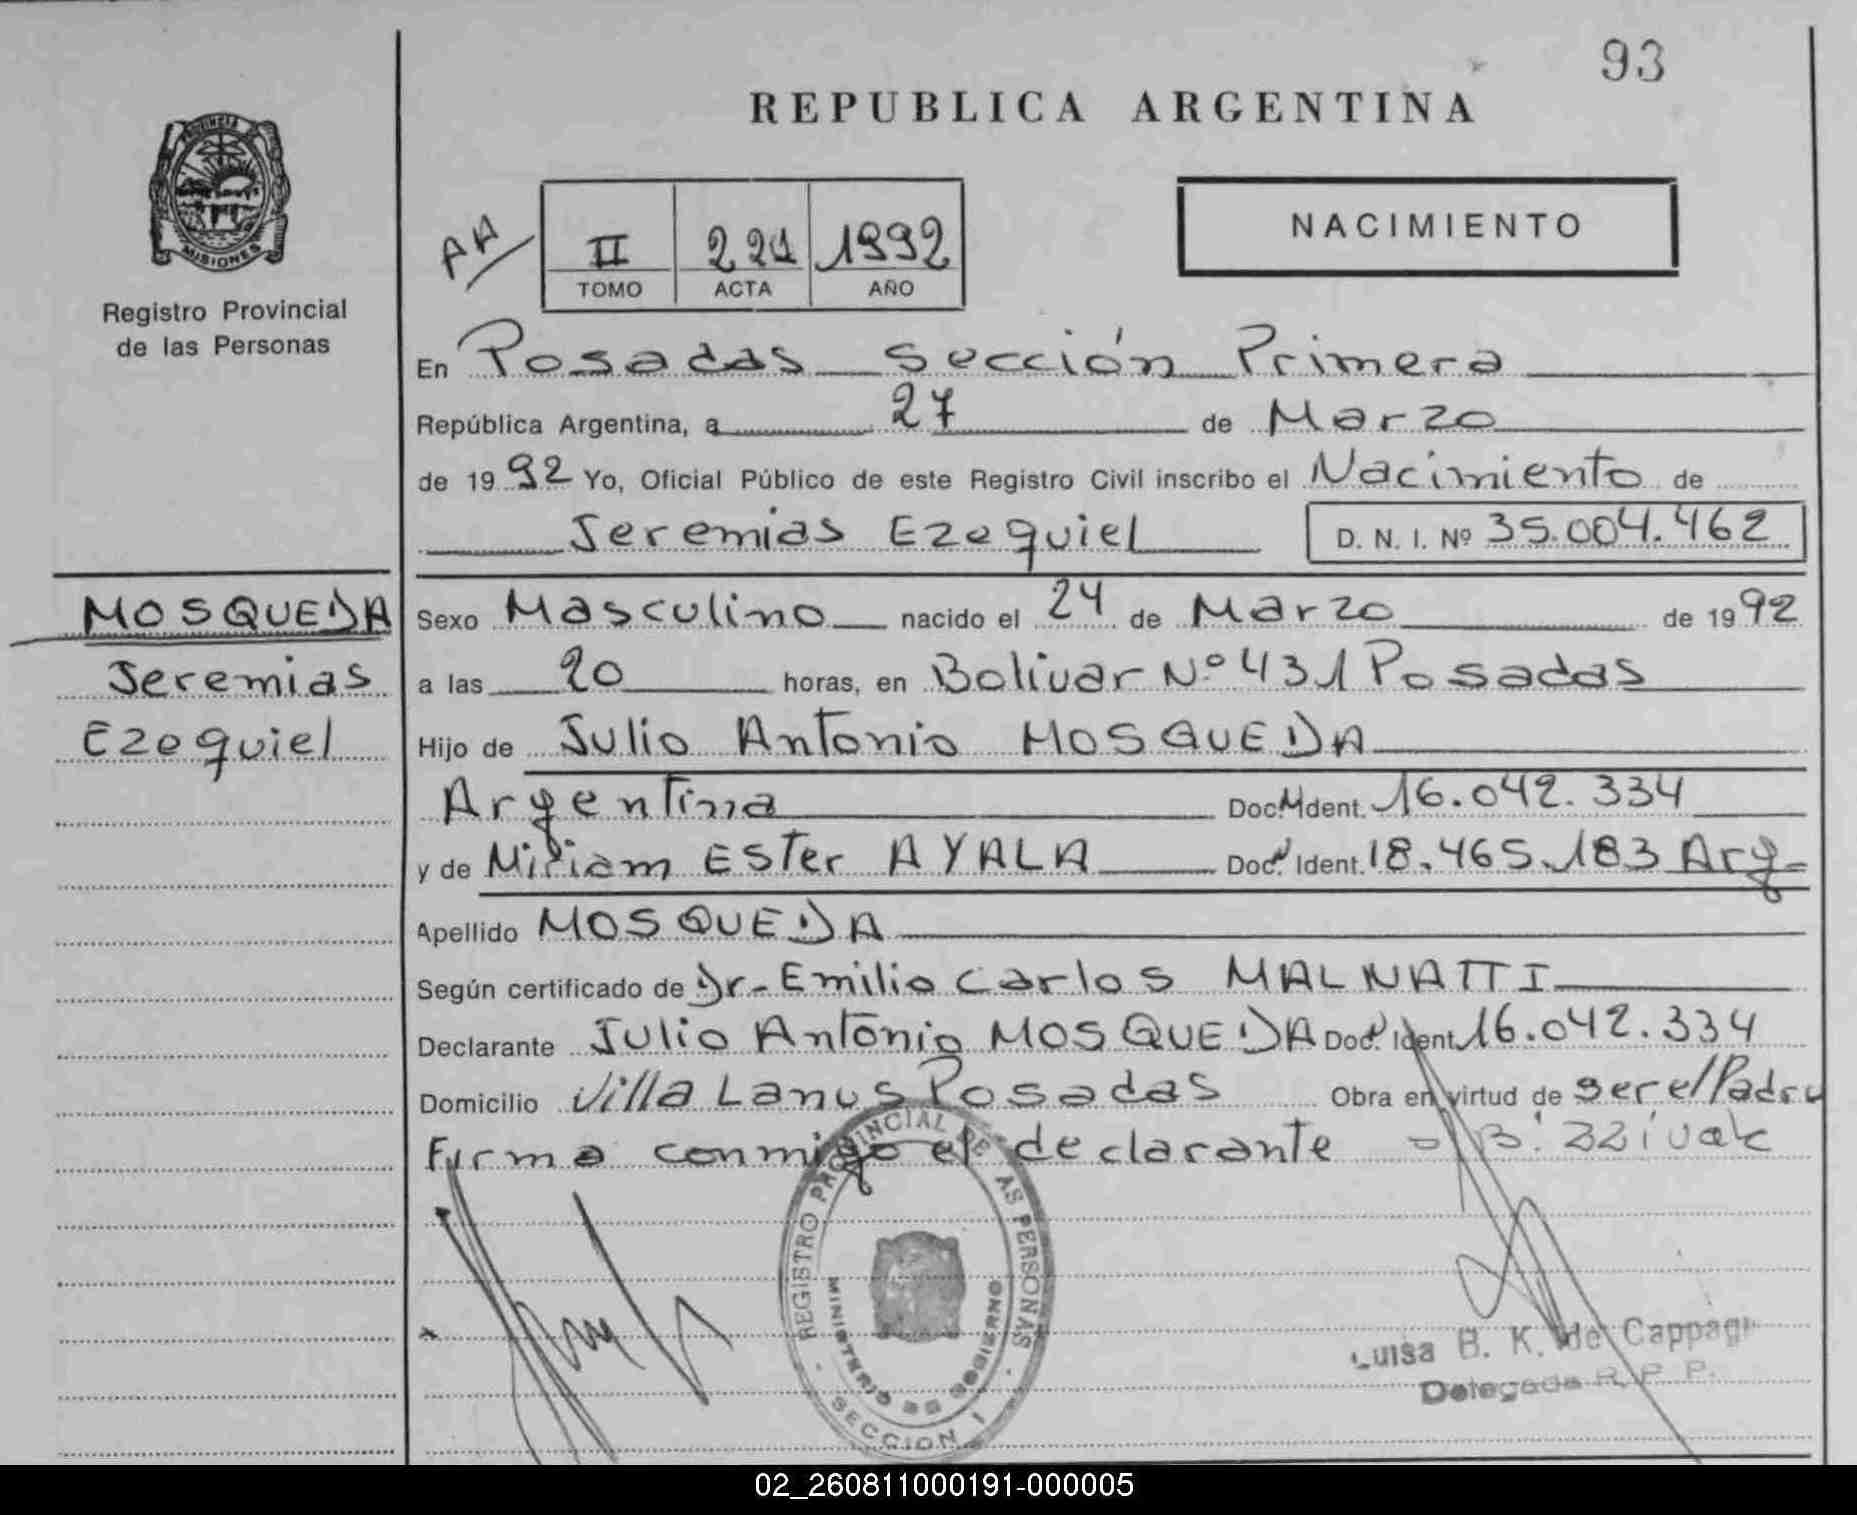 93
REPUBLICA ARGENTINA
PROVINCIA DE
MISIONES
Registro Provincial
de las Personas
AA
II 221 1992
TOMO ACTA AÑO
NACIMIENTO
En Posadas Sección Primera
República Argentina, a 27 de Marzo
de 1992 Yo, Oficial Público de este Registro Civil inscribo el Nacimiento de
Jeremias Ezequiel D. N. I. Nº 35.004.462
MOSQUEDA
Jeremias
Ezequiel
Sexo Masculino nacido el 24 de Marzo de 1992
a las 20 horas, en Bolivar Nº 431 Posadas
Hijo de Julio Antonio MOSQUEDA
Argentina Doc. Ident. 16.042.334
y de Miriam Ester AYALA Doc. Ident. 18.465.183 Arg
Apellido MOSQUEDA
Según certificado de Dr- Emilio Carlos MALNATTI
Declarante Julio Antonio MOSQUEDA Doc. Ident. 16.042.334
Domicilio Villa Lanus Posadas Obra en virtud de ser el Padre
Firma conmigo el declarante
REGISTRO PROVINCIAL DE LAS PERSONAS
MINISTERIO DE GOBIERNO
SECCION 1
Luisa B. K. de
Delegada R. P. P.
02_260811000191-000005